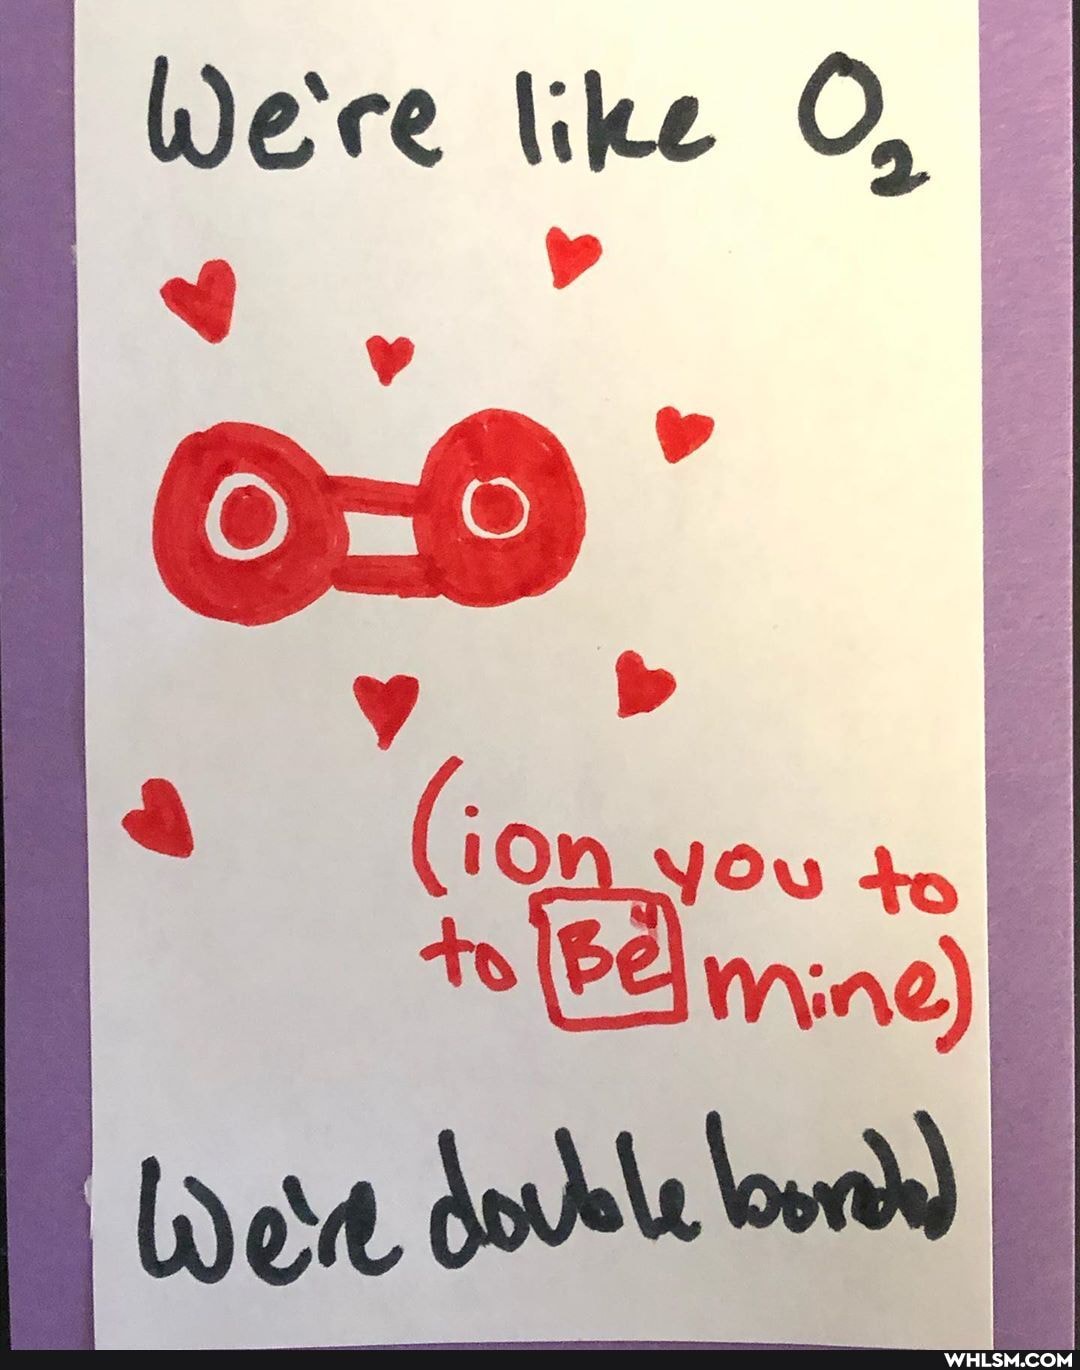 We're like O₂
(ion you to
to Be mine)
We're double bonded
WHLSM.COM